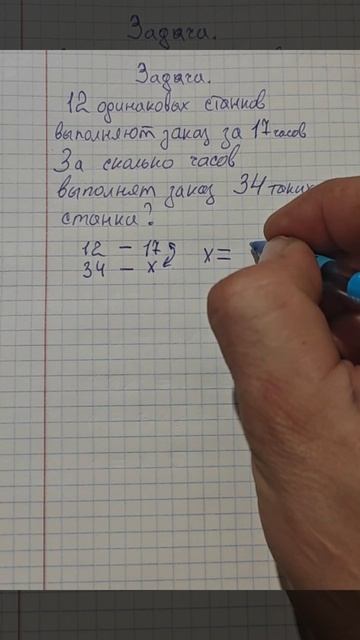 Задача.
Задача.
12 одинаковых станков
выполняют заказ за 17 часов
За сколько часов
выполнят заказ 34 таких
станка?
12 – 17
34 – x
x =